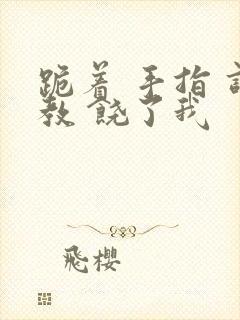 跪着 手指 
教 饶了我
飛櫻